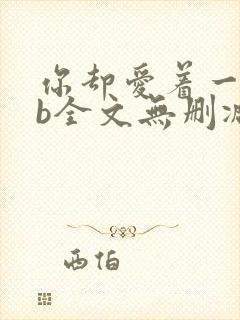 你却愛着一
b全文無删减
西伯